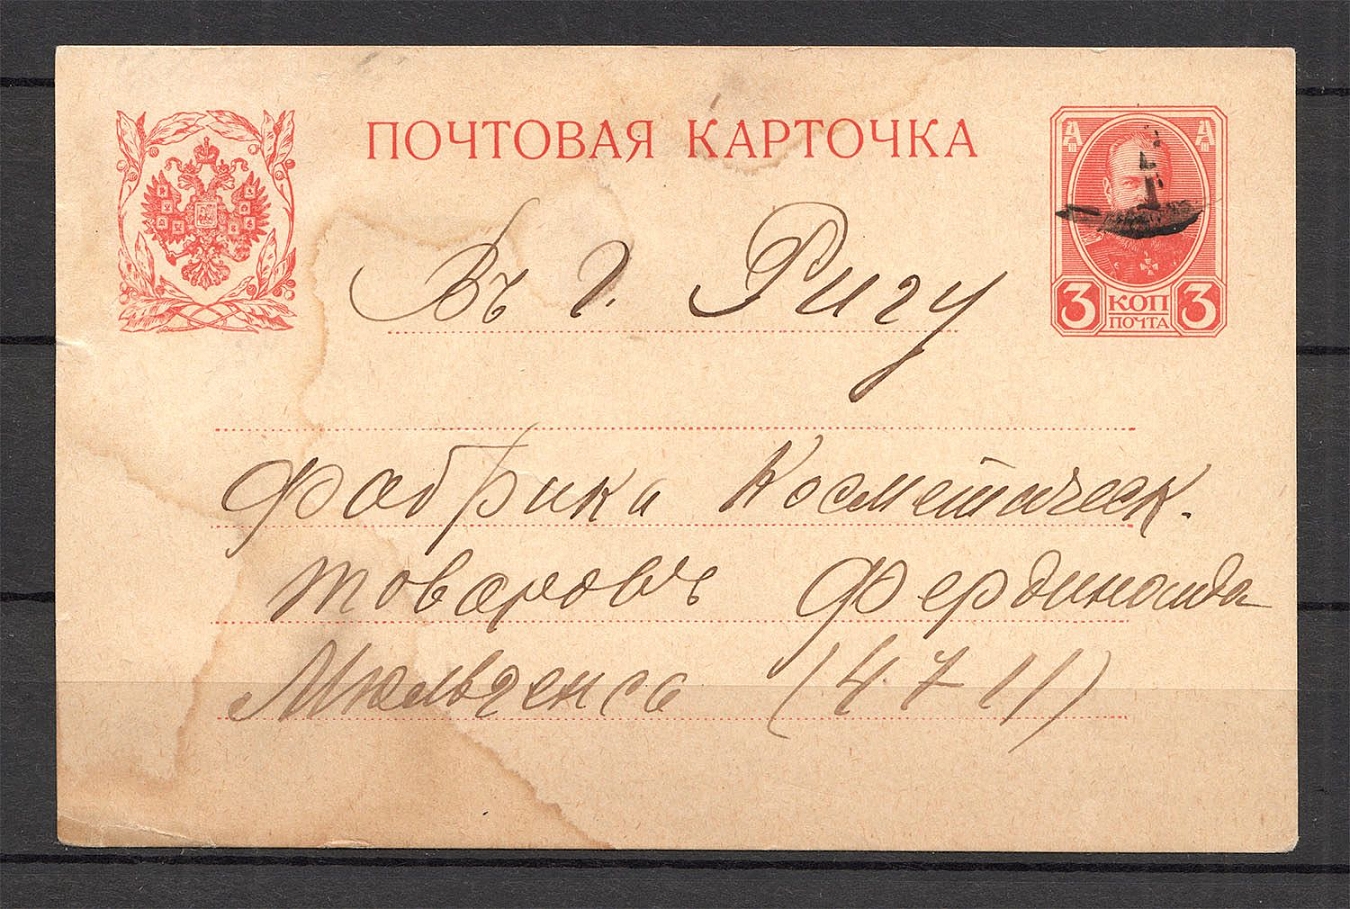 ПОЧТОВАЯ КАРТОЧКА
Въ г. Ригу
Фабрика Косметическ.
товаровъ Фердинанда
Мюльгенса (4711)
3 КОП 3
ПОЧТА